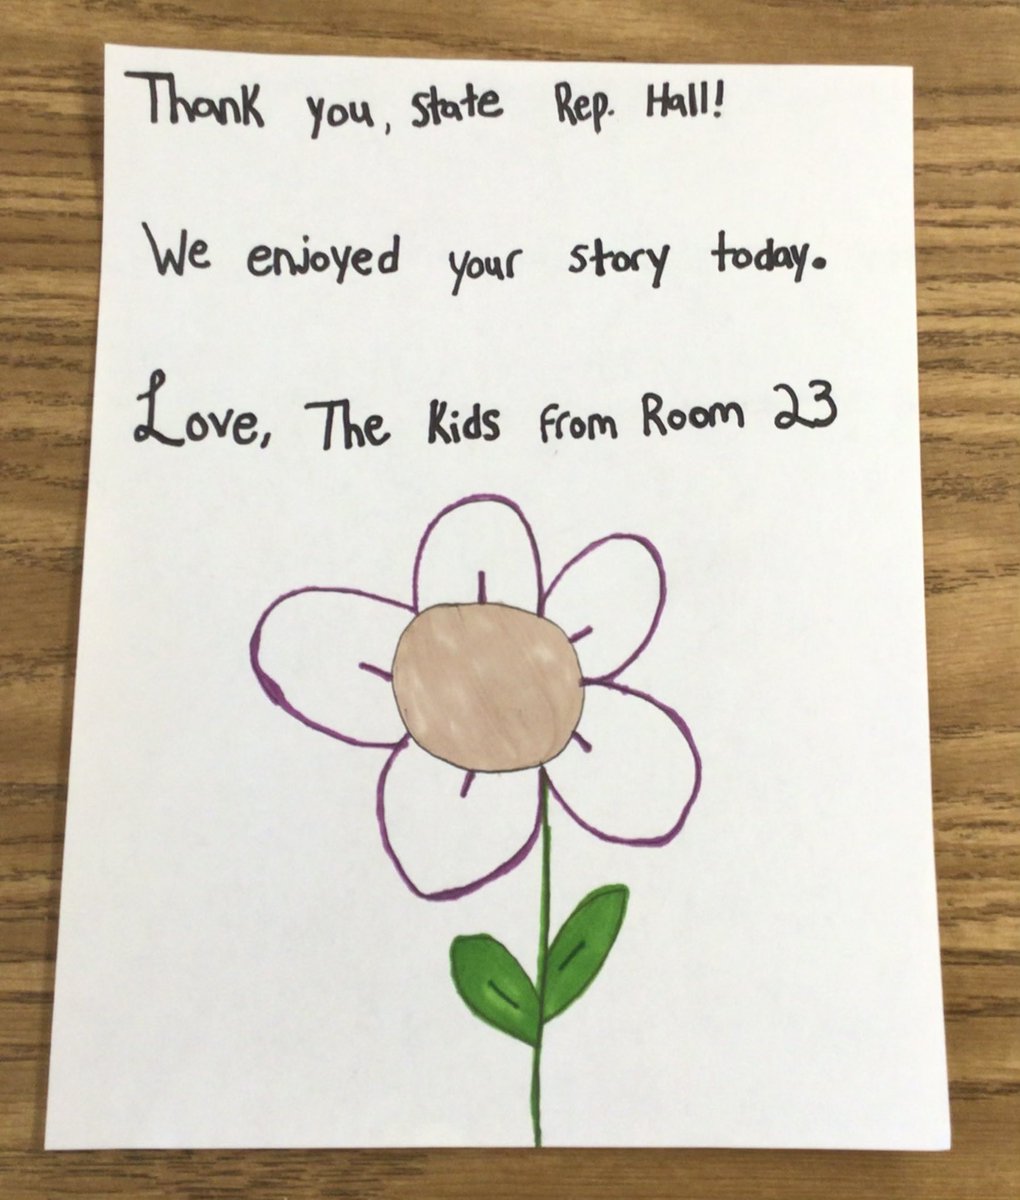 Thank you, State Rep. Hall!
We enjoyed your story today.
Love, The Kids from Room 23